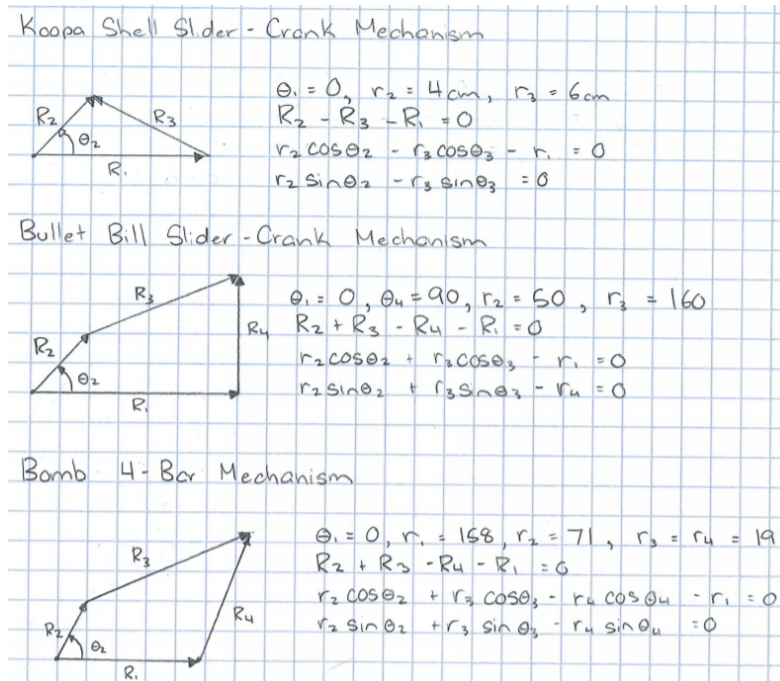 Koopa Shell Slider-Crank Mechanism
R₂
R₃
θ₂
R₁
θ₁ = 0, r₂ = 4cm, r₃ = 6cm
R₂ - R₃ - R₁ = 0
r₂cosθ₂ - r₃cosθ₃ - r₁ = 0
r₂sinθ₂ - r₃sinθ₃ = 0
Bullet Bill Slider-Crank Mechanism
R₃
R₂
R₄
θ₂
R₁
θ₁ = 0, θ₄ = 90, r₂ = 50, r₃ = 160
R₂ + R₃ - R₄ - R₁ = 0
r₂cosθ₂ + r₃cosθ₃ - r₁ = 0
r₂sinθ₂ + r₃sinθ₃ - r₄ = 0
Bomb 4-Bar Mechanism
R₃
R₂
R₄
θ₂
R₁
θ₁ = 0, r₁ = 158, r₂ = 71, r₃ = r₄ = 19
R₂ + R₃ - R₄ - R₁ = 0
r₂cosθ₂ + r₃cosθ₃ - r₄cosθ₄ - r₁ = 0
r₂sinθ₂ + r₃sinθ₃ - r₄sinθ₄ = 0